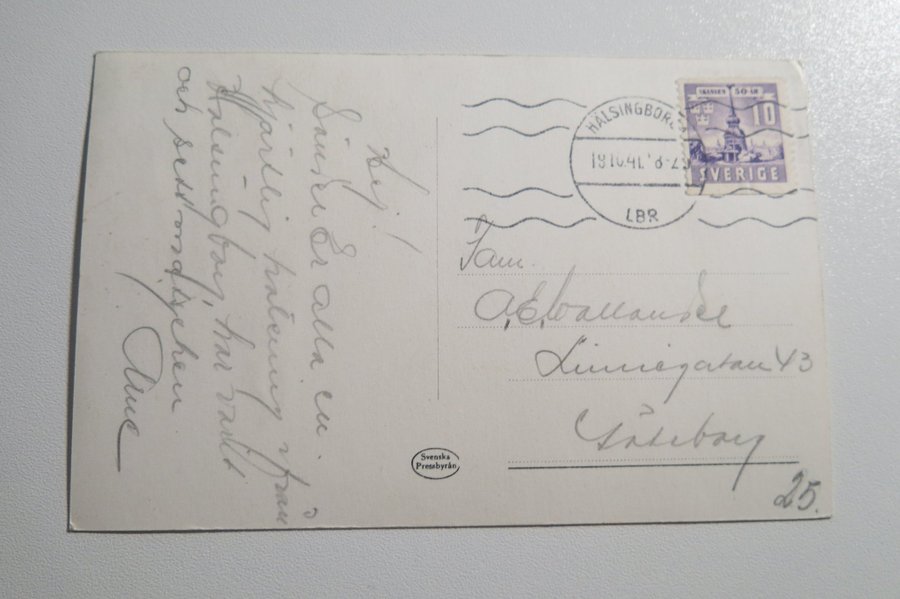 Hej!
Sänder Er alla en
hjärtlig hälsning ifrån
Hälsingborg, har varit
och sett
Arne
HÄLSINGBORG
19.10.41. 8-
LBR
SKANSEN 50 ÅR
10
SVERIGE
Fam.
A.E. Wallander
Linnégatan 43
Göteborg
Svenska
Pressbyrån
25.